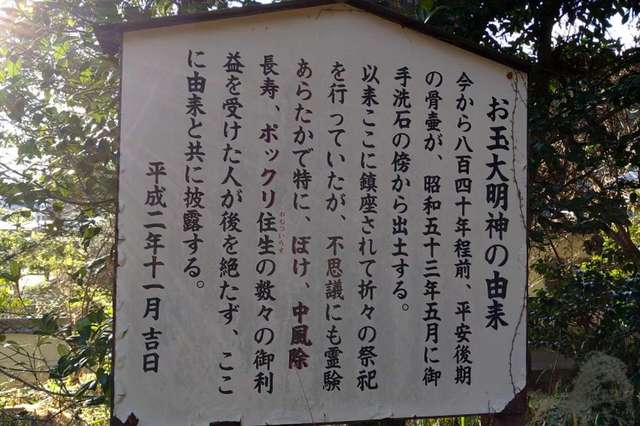 お玉大明神の由来
今から八百四十年程前、平安後期
の骨壷が、昭和五十三年五月に御
手洗石の傍から出土する。
以来ここに鎮座されて折々の祭祀
を行っていたが、不思議にも霊験
あらたかで特に、ぼけ、中風除
長寿、ポックリ住生の数々の御利
益を受けた人が後を絶たず、ここ
に由来と共に披露する。
平成二年十一月吉日